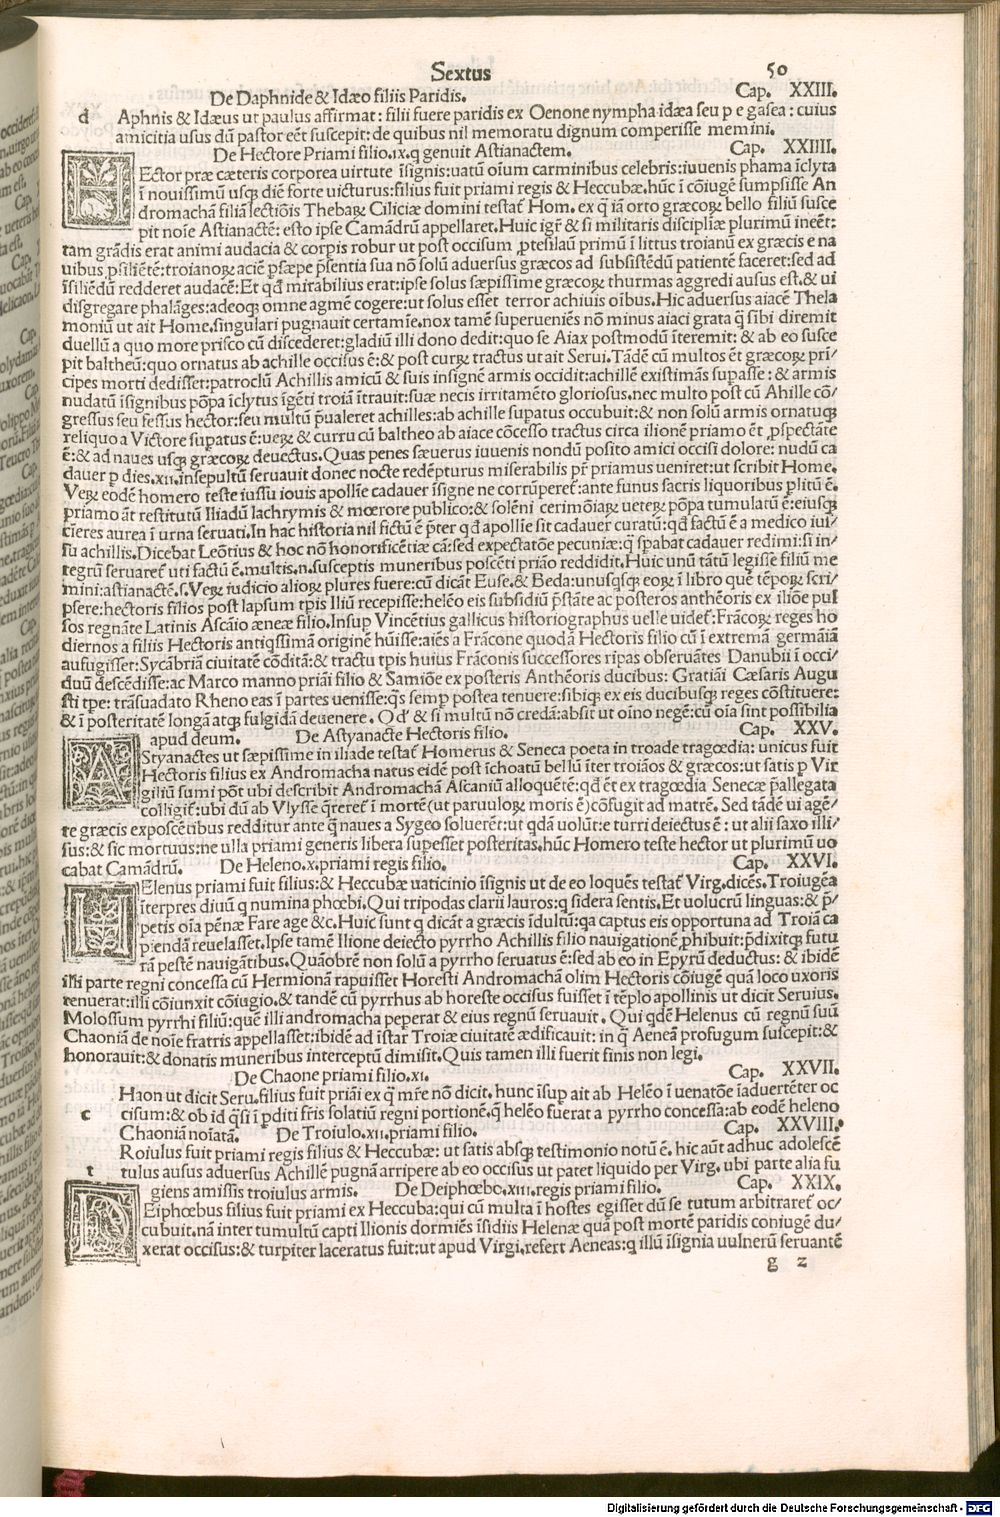 Sextus 50
De Daphnide & Idæo filiis Paridis. Cap. XXIII.
d Aphnis & Idæus ut paulus affirmat: filii fuere paridis ex Oenone nympha idæa seu p e gasea: cuius
amicitia usus dū pastor eēt suscepit: de quibus nil memoratu dignum comperisse memini.
De Hectore Priami filio.ix.q genuit Astianactem. Cap. XXIIII.
HEctor præ cæteris corporea uirtute īsignis:uatū oīum carminibus celebris:iuuenis phama īclyta
ī nouissimū usq; diē forte uicturus:filius fuit priami regis & Heccubæ.hūc ī cōiugē sumpsisse An
dromachā filiā lectiōis Thebaꝝ Ciliciæ domini testaṫ Hom. ex q̄ iā orto græcoꝝ bello filiū susce
pit noīe Astianactē: esto ipse Camādrū appellaret. Huic igṙ & si militaris discipliæ plurimū ineēt:
tam grādis erat animi audacia & corpis robur ut post occisum ꝓtesilaū primū ī littus troianū ex græcis e na
uibus ꝓsiliētē:troianoꝝ aciē p̄sæpe p̄sentia sua nō solū aduersus græcos ad subsistēdū patientē faceret:sed ad
īsiliēdū redderet audacē:Et qđ mirabilius erat:ipse solus sæpissime græcoꝝ thurmas aggredi ausus est.& ui
disgregare phalāges:adeoq; omne agmē cogere:ut solus esset terror achiuis oībus.Hic aduersus aiacē Thela
moniū ut ait Home.singulari pugnauit certamīe.nox tamē superueniēs nō minus aiaci grata q̄ sibi diremit
duellū a quo more prisco cū discederet:gladiū illi dono dedit:quo se Aiax postmodū īteremit: & ab eo susce
pit baltheū:quo ornatus ab achille occisus ē:& post curꝝ tractus ut ait Serui.Tādē cū multos ēt græcoꝝ prī/
cipes morti dedisset:patroclū Achillis amicū & suis insignē armis occidit:achillē existimās supasse: & armis
nudatū īsignibus pōpa īclytus īgēti troiā ītrauit:suæ necis irritamēto gloriosus.nec multo post cū Ahille cō/
gressus seu fessus hector:seu multū p̄ualeret achilles:ab achille supatus occubuit:& non solū armis ornatuq;
reliquo a Victore supatus ē:ueꝝ & curru cū baltheo ab aiace cōcesso tractus circa ilionē priamo ēt ꝓspectāte
ē:& ad naues usq; græcoꝝ deuectus.Quas penes sæuerus iuuenis nondū posito amici occisi dolore: nudū ca
dauer p dies.xii.insepultū seruauit donec nocte redēpturus miserabilis pṙ priamus ueniret:ut scribit Home.
Veꝝ eodē homero teste iussu iouis apollīe cadauer īsigne ne corrūpereṫ:ante funus sacris liquoribus p̄litū ē.
priamo āt restitutū Iliadū lachrymis & mœrore publico:& solēni cerimōiaꝝ ueteꝝ pōpa tumulatū ē:eiusq;
cīeres aurea ī urna seruati.In hac historia nil fictū ē p̄ter qđ apollīe sit cadauer curatū:qđ factū ē a medico iui/
su achillis.Dicebat Leōtius & hoc nō honorificētiæ cā:sed expectatōe pecuniæ:q̄ spabat cadauer redimi:si in/
tegrū seruareṫ uti factū ē.multis.n.susceptis muneribus poscēti priāo reddidit.Huic unū tātū legisse filiū me
mini:astianactē.s.Veꝝ iudicio alioꝝ plures fuere:cū dicāt Euse.& Beda:unusq̄sq; eoꝝ ī libro quē tēpoꝝ scri/
psere:hectoris filios post lapsum tp̄is Iliū recepisse:helēo eis subsidiū p̄stāte ac posteros anthēoris ex iliōe pul
sos regnāte Latinis Ascāio æneæ filio.Insup Vincētius gallicus historiographus uelle uideṫ:Frācoꝝ reges ho
diernos a filiis Hectoris antiqssimā originē hūisse:aiēs a Frācone quodā Hectoris filio cū ī extremā germāiā
aufugisset:Sycābriā ciuitatē cōditā:& tractu tp̄is huius Frāconis successores ripas obseruātes Danubii ī occi/
duū descēdisse:ac Marco manno priāi filio & Samiōe ex posteris Anthēoris ducibus: Gratiāi Cæsaris Augu
sti tpe: trāsuadato Rheno eas ī partes uenisse:q̄s semp postea tenuere:sibiq; ex eis ducibusq; reges cōstituere:
& ī posteritatē longā atq; fulgidā deuenere. Qđ & si multū nō credā:absit ut oīno negē:cū oīa sint possibilia
apud deum. De Astyanacte Hectoris filio. Cap. XXV.
AStyanactes ut sæpissime in iliade testaṫ Homerus & Seneca poeta in troade tragœdia: unicus fuit
Hectoris filius ex Andromacha natus eidē post īchoatū bellū īter troiāos & græcos:ut satis p Vir
giliū sumi pōt ubi describit Andromachā Ascaniū alloquētē:qđ ēt ex tragœdia Senecæ p̄allegata
colligiṫ:ubi dū ab Vlysse q̄rereṫ ī mortē(ut paruuloꝝ moris ē)cōfugit ad matrē. Sed tādē ui agē/
te græcis exposcētibus redditur ante q̄ naues a Sygeo soluerēt:ut qdā uolūt:e turri deiectus ē: ut alii saxo illi/
sus:& sic mortuus:ne ulla priami generis libera supesset posteritas.hūc Homero teste hector ut plurimū uo
cabat Camādrū. De Heleno.x.priami regis filio. Cap. XXVI.
HElenus priami fuit filius:& Heccubæ uaticinio īsignis ut de eo loquēs testaṫ Virg.dicēs.Troiugēa
īterpres diuū q numina phœbi.Qui tripodas clarii lauros:q sidera sentis.Et uolucrū linguas:& p̄/
petis oīa pēnæ Fare age &c.Huic sunt q dicāt a græcis īdultū:qa captus eis opportuna ad Troiā ca
piendā reuelasset.Ipse tamē Ilione deiecto pyrrho Achillis filio nauigationē ꝓhibuit:p̄dixitq; futu
rā pestē nauigātibus.Quāobrē non solū a pyrrho seruatus ē:sed ab eo in Epyrū deductus: & ibidē
illi parte regni concessa cū Hermionā rapuisset Horesti Andromachā olim Hectoris cōiugē quā loco uxoris
tenuerat:illi cōiunxit cōiugio.& tandē cū pyrrhus ab horeste occisus fuisset ī tēplo apollinis ut dicit Seruius.
Molossum pyrrhi filiū:quē illi andromacha peperat & eius regnū seruauit. Qui qdē Helenus cū regnū suū
Chaoniā de noīe fratris appellasset:ibidē ad īstar Troiæ ciuitatē ædificauit: in q̄ Aeneā profugum suscepit:&
honorauit:& donatis muneribus interceptū dimisit.Quis tamen illi fuerit finis non legi.
De Chaone priami filio.xi. Cap. XXVII.
c Haon ut dicit Seru.filius fuit priāi ex q̄ mr̄e nō dicit. hunc īsup ait ab Helēo ī uenatōe īaduertēter oc
cisum:& ob id q̄si ī pditi fr̄is solatiū regni portionē.q̄ helēo fuerat a pyrrho concessa:ab eodē heleno
Chaoniā noīatā. De Troiulo.xii.priami filio. Cap. XXVIII.
t Roiulus fuit priami regis filius & Heccubæ: ut satis absq; testimonio notū ē. hic aūt adhuc adolescē
tulus ausus aduersus Achillē pugnā arripere ab eo occisus ut patet liquido per Virg. ubi parte alia fu
giens amissis troiulus armis. De Deiphœbo.xiii.regis priami filio. Cap. XXIX.
DEiphœbus filius fuit priami ex Heccuba:qui cū multa ī hostes egisset dū se tutum arbitrareṫ oc/
cubuit.nā inter tumultū capti Ilionis dormiēs īsidiis Helenæ quā post mortē paridis coniugē du/
xerat occisus:& turpiter laceratus fuit:ut apud Virgi.refert Aeneas:q illū īsignia uulnerū seruantē
g 2
Digitalisierung gefördert durch die Deutsche Forschungsgemeinschaft - DFG